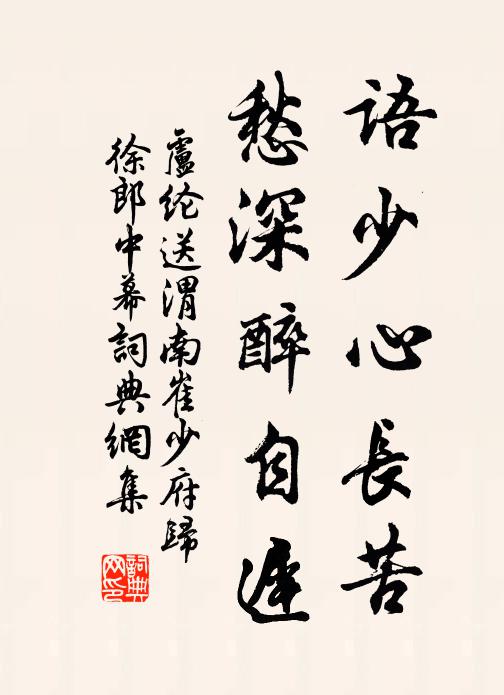 語少心長苦
愁深醉自遲
盧纶送渭南崔少府歸
徐郎中幕詞典網集
詞典网印